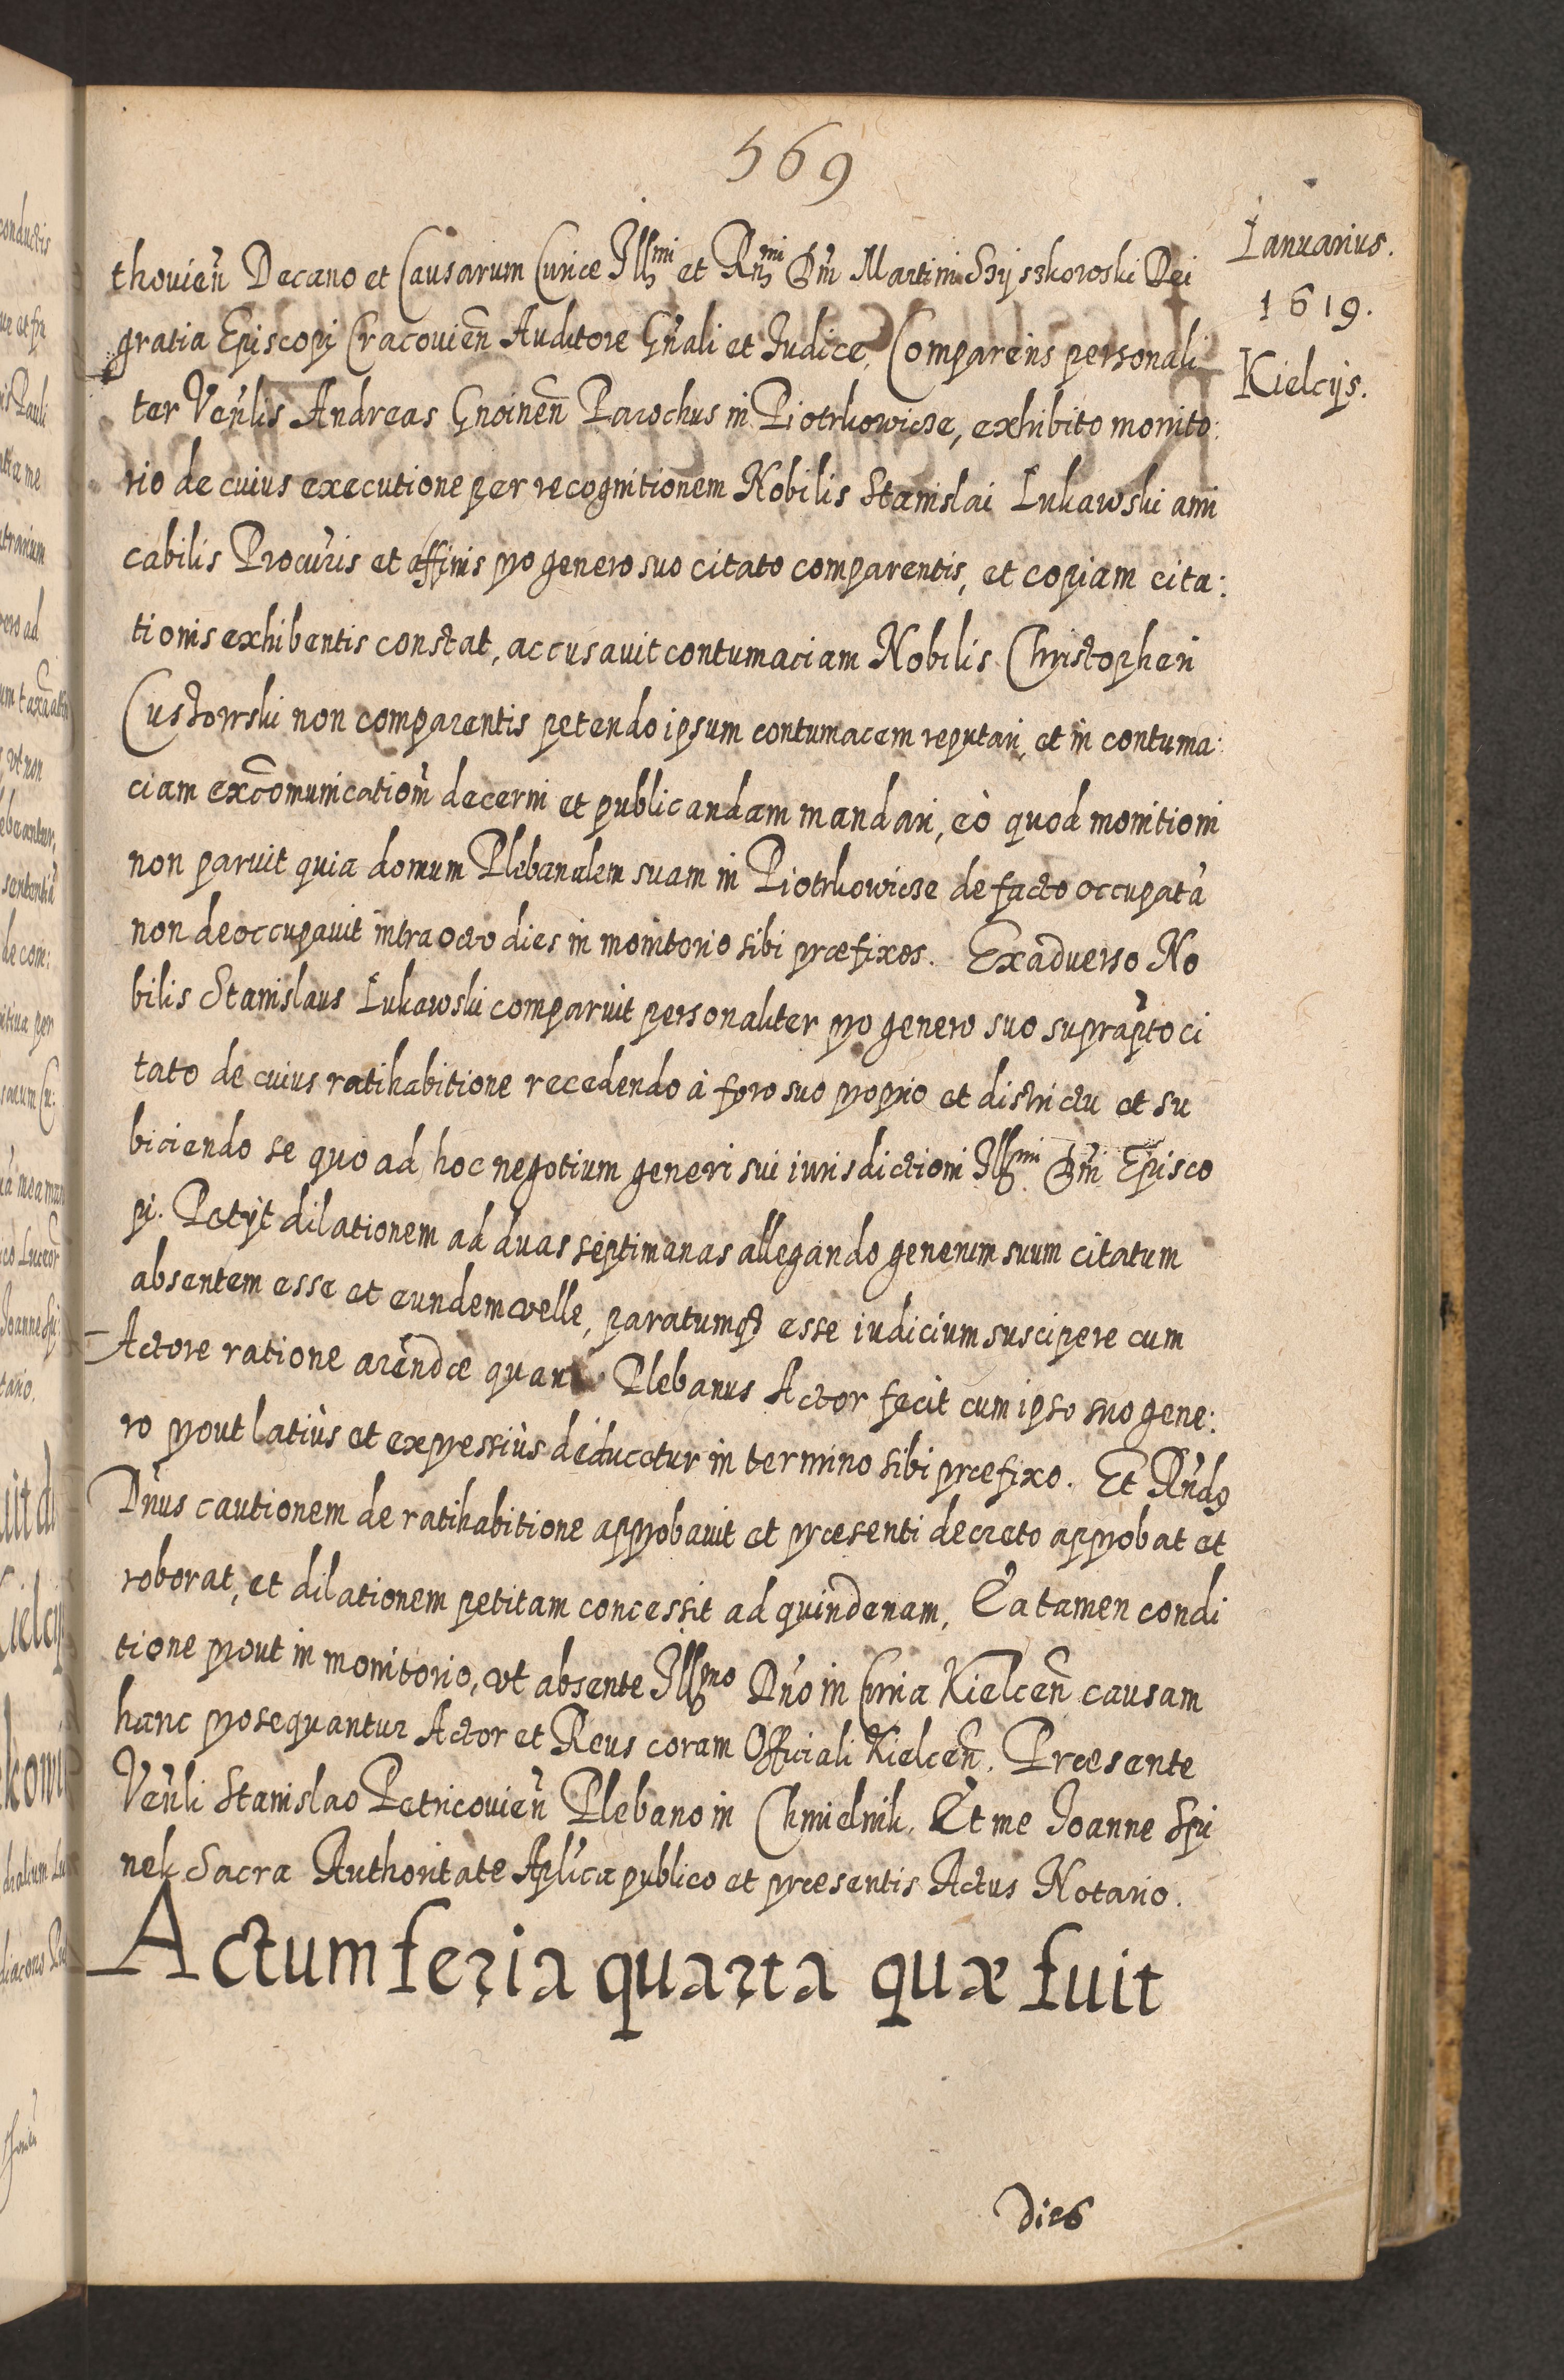 569
Ianuarius.
1619.
Kielcijs.
thouień Decano et Causarum Curiæ Illmi et Rmi Dńi Martini Szyszkowski Dei
gratia Episcopi Cracouień Auditore Gńali et Iudice, Comparens personali
ter Veńlis Andreas Gnoinen̄ Parochus in Piotrkowicze, exhibito monito:
rio de cuius executione per recognitionem Nobilis Stanislai Lukawski ami
cabilis Procuŕis et affinis pro genero suo citato comparentis, et copiam cita:
tionis exhibentis constat, accusauit contumaciam Nobilis Christopheri
Custowski non comparentis petendo ipsum contumacem reputari, et in contuma:
ciam exc̄omunicatiom̀ decerni et publicandam mandari, eò quod monitioni
non paruit quia domum Plebanalem suam in Piotrkowicze de facto occupatā
non deoccupauit intra octo dies in monitorio sibi præfixos. Exaduerso No
bilis Stanislaus Lukawski comparuit personaliter pro genero suo suprap̀to ci
tato de cuius ratihabitione recedendo à foro suo proprio et districtu et su
biciendo se quo ad hoc negotium generi sui iurisdictioni Illmi Dńi Episco
pi. Petijt dilationem ad duas septimanas allegando generum suum citatum
absentem esse et eundem velle, paratumq3 esse iudicium suscipere cum
Actore ratione arendæ Plebanus Actor fecit cum ipso suo gene:
ro prout latiùs et expressiùs deducetur in termino sibi præfixo. Et Rńdg
Dńus cautionem de ratihabitione approbauit et præsenti decreto approbat et
roborat, et dilationem petitam concessit ad quindenam, Ea tamen condi
tione prout in monitorio, vt absente Illmo Dńo in Curia Kielcen̄ causam
hanc prosequantur Actor et Reus coram Officiali Kielcen̄. Præsente
Veńli Stanislao Petricouień Plebano in Chmielnik. Et me Joanne Spi
nek Sacra Authoritate Aplica publico et præsentis Actus Notario.
Actum feria quarta quæ fuit
dies